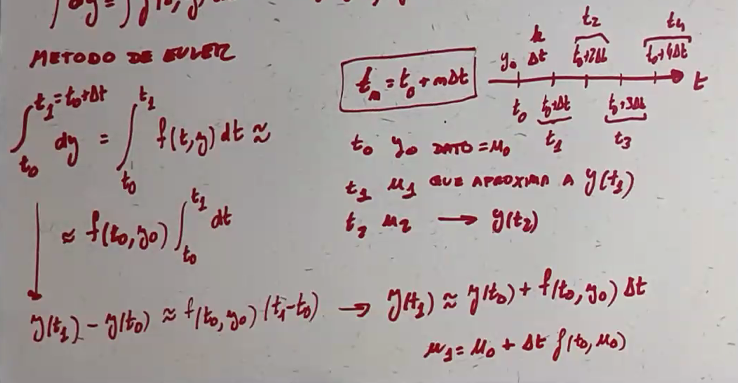 ∫dy = ∫f(t,y)
METODO DE EULER
∫_{t0}^{t1=t0+Δt} dy = ∫_{t0}^{t1} f(t,y) dt ≈
≈ f(t0,y0) ∫_{t0}^{t1} dt
y(t1) - y(t0) ≈ f(t0,y0) (t1-t0) → y(t1) ≈ y(t0) + f(t0,y0) Δt
u1 = u0 + Δt f(t0,u0)
tn = t0 + nΔt
t2 t4
y0 Δt t0+2Δt t0+4Δt t
t0 t0+Δt t0+3Δt
t1 t3
t0 y0 DATO = u0
t1 u1 QUE APROXIMA A y(t1)
t2 u2 → y(t2)